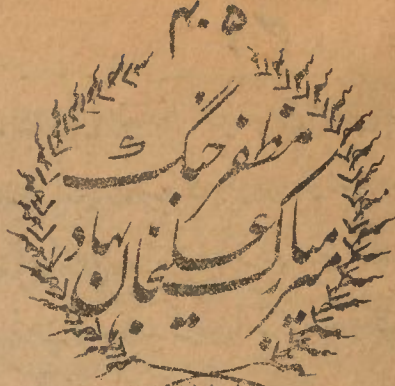 مظفر جنگ
میر مبارک علیخان بهادر